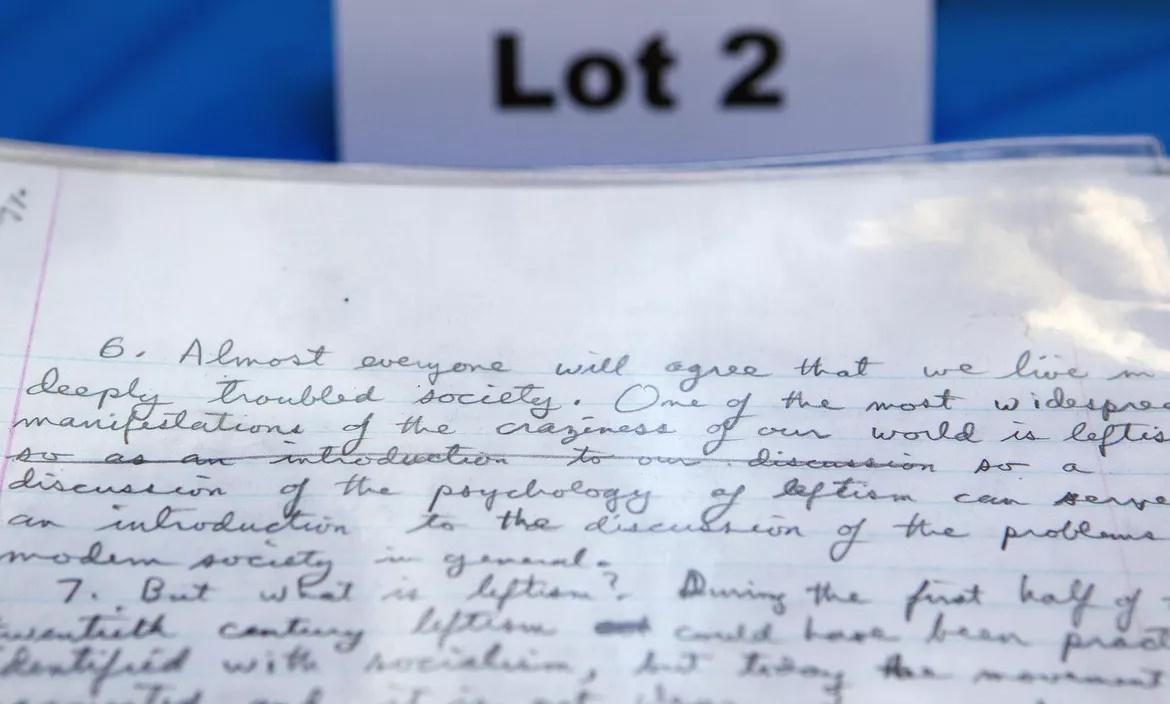 Lot 2
6. Almost everyone will agree that we live in
deeply troubled society. One of the most widesprea
manifestations of the craziness of our world is leftis
so as an introduction to our discussion so a
discussion of the psychology of leftism can serve
an introduction to the discussion of the problems
modern society in general.
7. But what is leftism? During the first half of
twentieth century leftism could have been pract
identified with socialism, but today the movement
and it is not